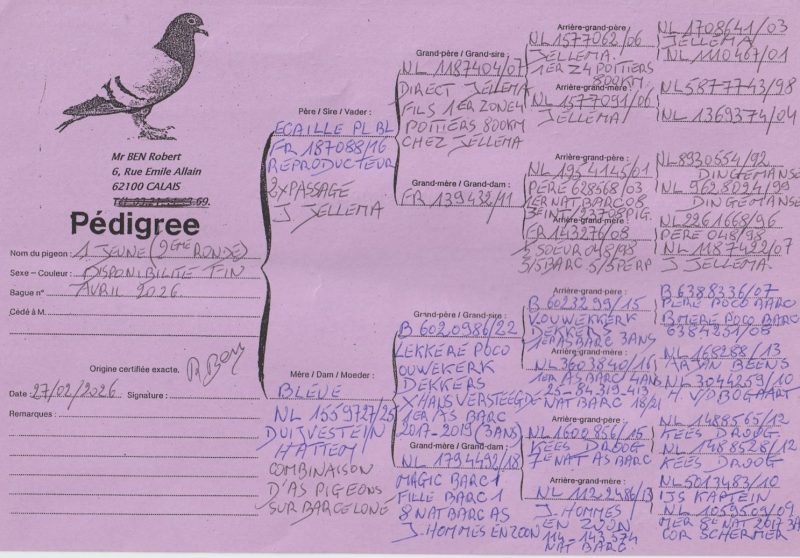 Mr BEN Robert
6, Rue Emile Allain
62100 CALAIS
Pédigree
Nom du pigeon : 1 JEUNE (2ÈME RONDE)
Sexe – Couleur : DISPONIBILITE FIN
Bague n° AVRIL 2026
Cédé à M.
Origine certifiée exacte.
R Ben
Date : 27/02/2026 Signature :
Remarques :
Père / Sire / Vader :
ECAILLE PL BL
FR 187088/16
REPRODUCTEUR
2XPASSAGE
J JELLEMA
Mère / Dam / Moeder :
BLEUE
NL 1559727/25
DUIJVESTEIN
HATTEM
COMBINAISON
D'AS PIGEONS
SUR BARCELONE
Grand-père / Grand-sire :
NL 1187404/07
DIRECT JELLEMA
FILS 1ER ZONE4
POITIERS 800KM
CHEZ JELLEMA
Grand-mère / Grand-dam :
FR 139432/11
Grand-père / Grand-sire :
B 6020986/22
LEKKERE POCO
OUWEKERK
DEKKERS
XHANS VERSTEEG
1ER AS BARC
2017-2019/3ANS
Grand-mère / Grand-dam :
NL 1794492/18
MAGIC BARC 1
FILLE BARC 1
8 NAT BARC AS
J. HOMMES EN ZOON
Arrière-grand-père :
NL 1577062/06
JELLEMA
1ER Z4 POITIERS
800KM
Arrière-grand-mère :
NL 1577091/06
JELLEMA
Arrière-grand-père :
NL 1954145/01
PERE 628568/03
1ER NAT BARC 08
23708 PIG.
Arrière-grand-mère :
FR 143276/08
SOEUR 048/98
3/5BARC 5/5PERP
Arrière-grand-père :
B 6023299/15
VOUWEKKERK
DEKKERS
1ER AS BARC 3ANS
Arrière-grand-mère :
NL 3603840/16
1ER AS BARC 4ANS
25-84-319-413
NAT BARC 18/21
Arrière-grand-père :
NL 1600856/15
KEES DROOG
7E NAT AS BARC
Arrière-grand-mère :
NL 1122486/13
J. HOMMES
EN ZOON
114-143 574
NAT BARC.
NL 1708641/03
JELLEMA
NL 1110467/01
NL 5877743/98
NL 1369374/04
NL 8930554/92
DINGEMANSE
NL 9628024/99
DINGEMANSE
NL 2261668/96
PERE 048/98
NL 1187422/07
J JELLEMA.
B 6388336/07
PERE POCO BARC
B MERE POCO BARC
6384231/05
NL 168288/13
ARJAN BEENS
NL 3044259/10
H. V/D BOGAART
NL 1488565/12
KEES DROOG
NL 1488528/12
KEES DROOG
NL 5013483/10
IJS KAPTEIN
NL 1059509/09
MER 8E NAT 2017 3A
COR SCHERMER